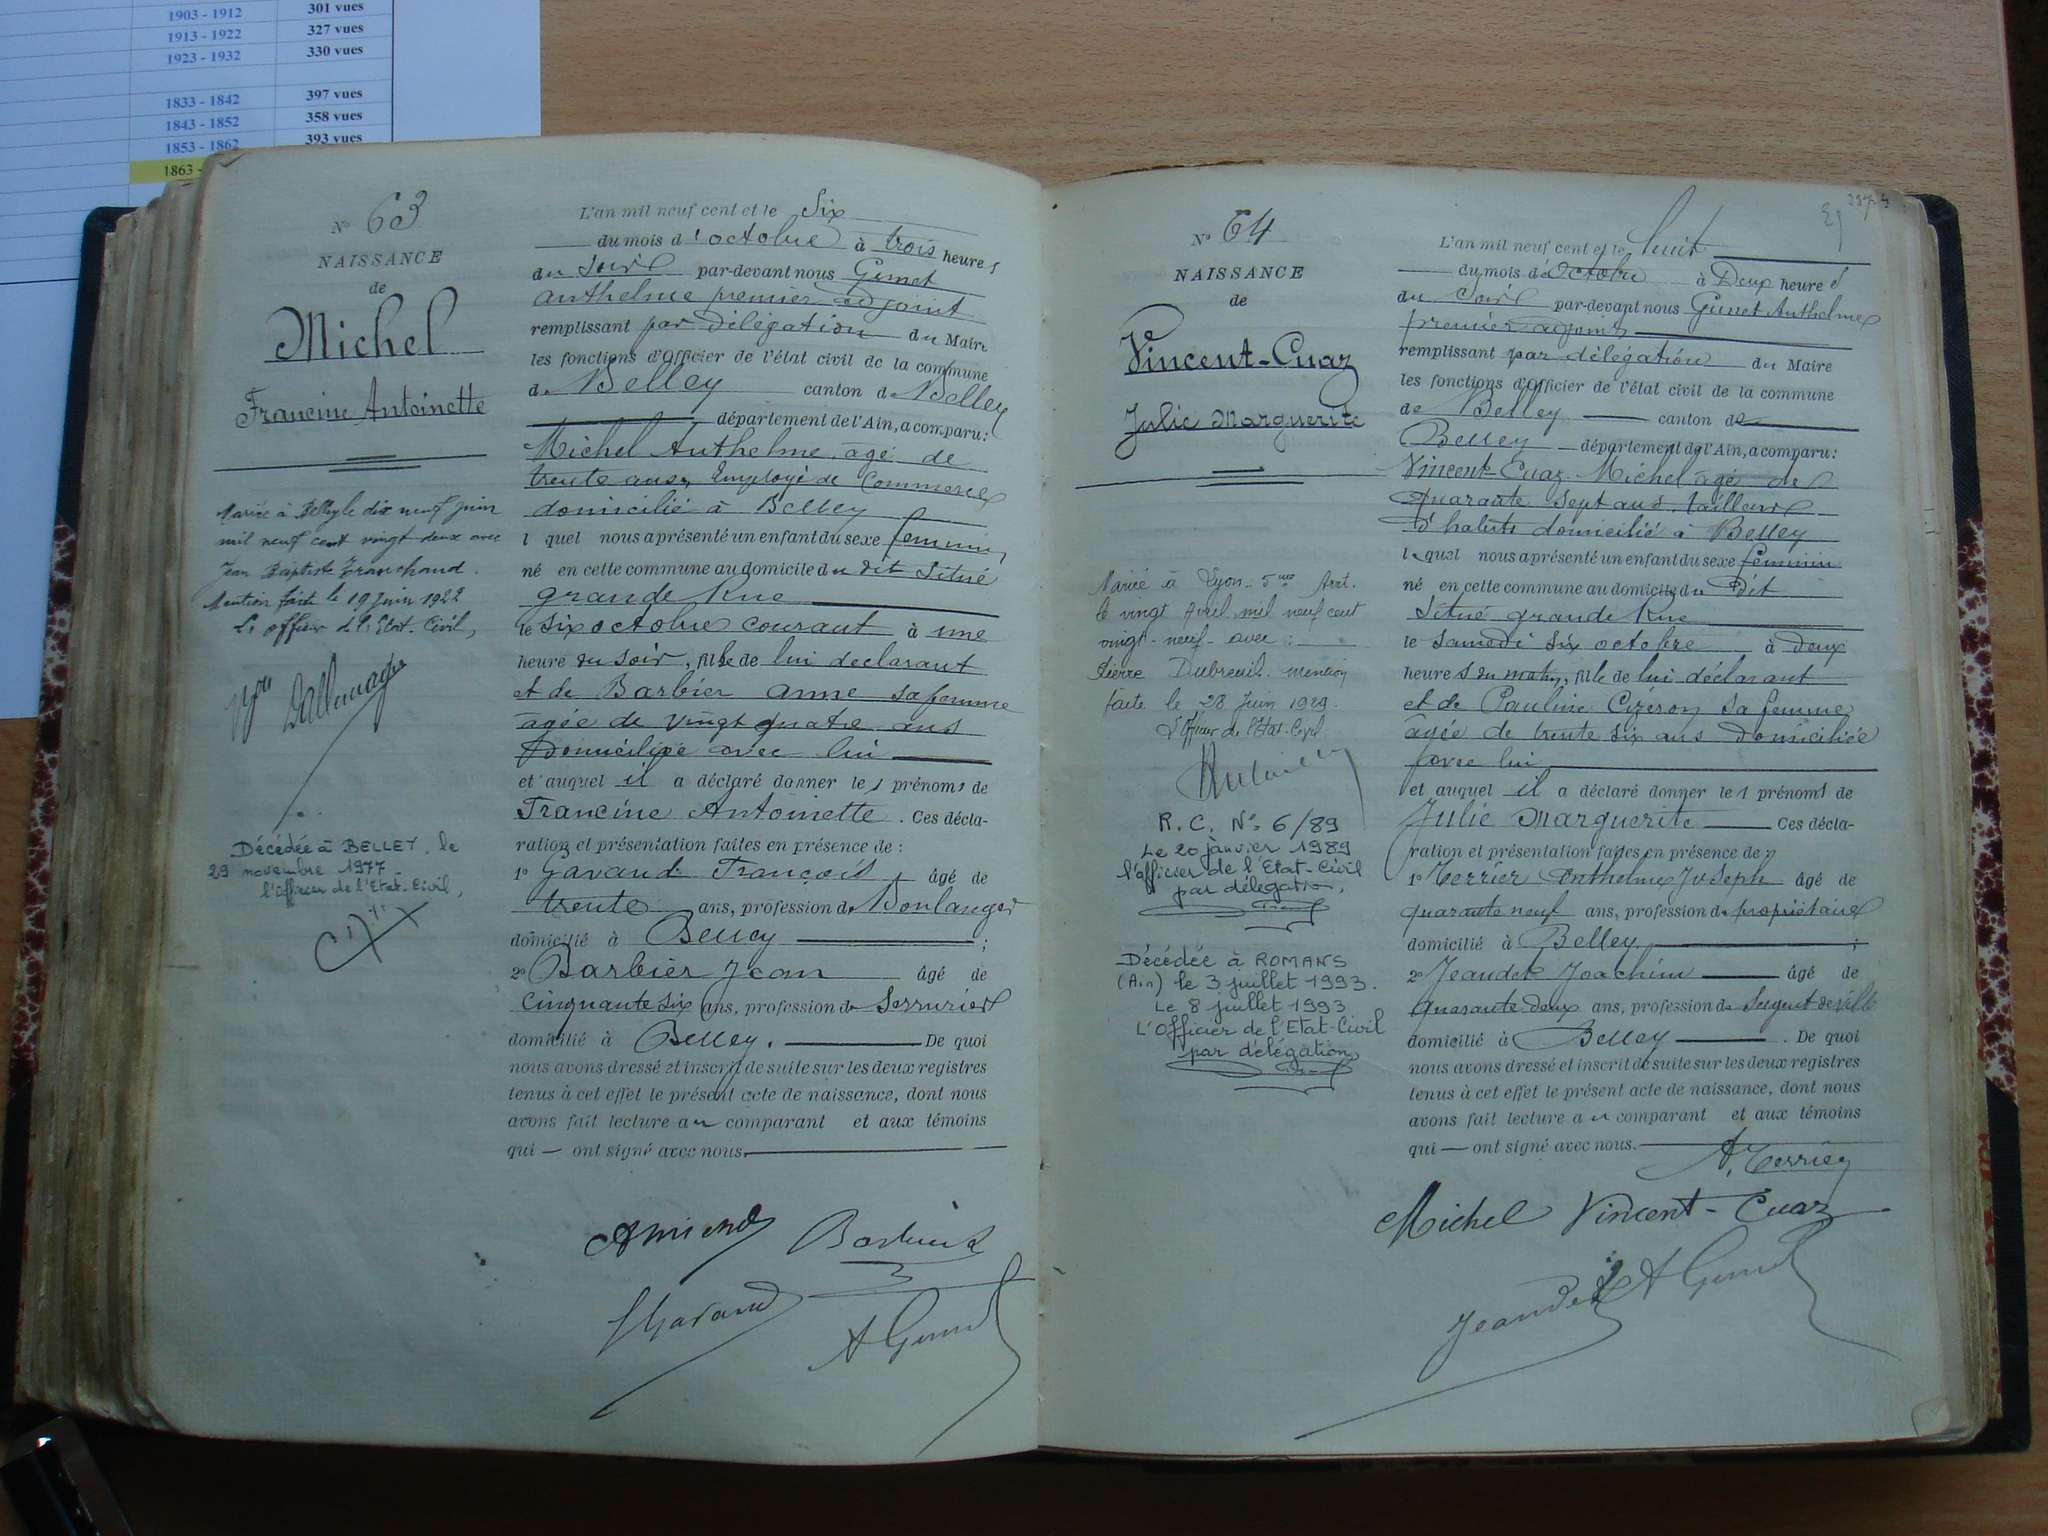 1903 - 1912 301 vues
1913 - 1922 327 vues
1923 - 1932 330 vues
1833 - 1842 397 vues
1843 - 1852 358 vues
1853 - 1862 393 vues
1863 -
N° 63
NAISSANCE
de
Michel
Francine Antoinette
Mariée à Belley le dix neuf juin
mil neuf cent vingt deux avec
Jean Baptiste Tranchand.
Mention faite le 19 Juin 1922
L'officier de l'Etat-Civil,
Décédée à BELLEY, le
29 novembre 1977
l'Officier de l'Etat-Civil,
L'an mil neuf cent et le Six
du mois d'octobre à trois heures
du Soir par-devant nous Gunet
anthelme premier adjoint
remplissant par délégation du Maire
les fonctions d'Officier de l'état civil de la commune
de Belley canton de Belley
département de l'Ain, a comparu:
Michel Anthelme âgé de
trente ans, Employé de Commerce
domicilié à Belley
lequel nous a présenté un enfant du sexe feminin,
né en cette commune au domicile du dit Situé
grande Rue
le six octobre courant à une
heure du soir, fille de lui declarant
et de Barbier anne sa femme
âgée de vingt quatre ans
Domiciliée avec lui
et auquel il a déclaré donner les prénoms de
Francine Antoinette. Ces décla-
ration et présentation faites en présence de :
1° Gavand François âgé de
trente ans, profession de Boulanger
domicilié à Belley ;
2° Barbier Jean âgé de
Cinquante six ans, profession de Serrurier
domicilié à Belley. De quoi
nous avons dressé et inscrit de suite sur les deux registres
tenus à cet effet le présent acte de naissance, dont nous
avons fait lecture au comparant et aux témoins
qui — ont signé avec nous.
Barbier
A Gunet
N° 64
NAISSANCE
de
Vincent-Cuaz
Julie Marguerite
Mariée à Lyon 5me Arrt.
le vingt Avril mil neuf cent
vingt-neuf avec :
Pierre Dubreuil. mention
faite le 28 Juin 1929.
L'Officier de l'Etat-Civil
R.C. N° 6/89
Le 20 janvier 1989
l'officier de l'Etat-Civil
par délégation,
Décédée à ROMANS
(Ain) le 3 juillet 1993.
Le 8 juillet 1993
L'Officier de l'Etat-Civil
par délégation,
L'an mil neuf cent et le huit
du mois d'Octobre à Deux heures
du Soir par-devant nous Gunet Anthelme
premier adjoint
remplissant par délégation du Maire
les fonctions d'Officier de l'état civil de la commune
de Belley canton de
Belley département de l'Ain, a comparu:
Vincent-Cuaz Michel âgé de
Quarante Sept ans tailleur
d'habits domicilié à Belley
lequel nous a présenté un enfant du sexe feminin
né en cette commune au domicile du Dit
situé grande Rue
le samedi six octobre à Deux
heures du matin, fille de lui déclarant
et de Pauline Cizeron sa femme
âgée de trente six ans Domiciliée
avec lui
et auquel il a déclaré donner les prénoms de
Julie Marguerite Ces décla-
ration et présentation faites en présence de :
1° Terrier Anthelme Joseph âgé de
quarante neuf ans, profession de propriétaire
domicilié à Belley ;
2° Jeandet Joachim âgé de
Quarante-deux ans, profession de Sergent de ville
domicilié à Belley. De quoi
nous avons dressé et inscrit de suite sur les deux registres
tenus à cet effet le présent acte de naissance, dont nous
avons fait lecture au comparant et aux témoins
qui — ont signé avec nous.
A. Terrier
Michel Vincent-Cuaz
Jeandet A Gunet